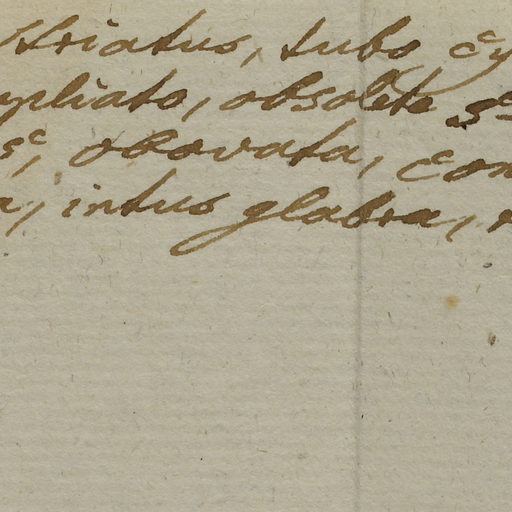 striatus, tubo cy
pliato, obsolete 5
s, obovata, con
a, intus glabra,